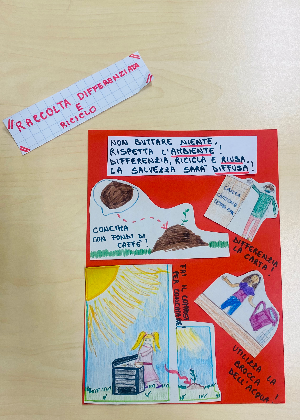 "RACCOLTA DIFFERENZIATA
E
RICICLO"
NON BUTTARE NIENTE,
RISPETTA L'AMBIENTE!
DIFFERENZIA, RICICLA E RIUSA,
LA SALVEZZA SARA' DIFFUSA!
CONCIMA
CON FONDI DI
CAFFE'!
CARTA
DIFFERENZIA
LA CARTA!
FAI IL COMPOST
PER CONCIMARE!
UTILIZZA LA
BROCCA
DELL'ACQUA!